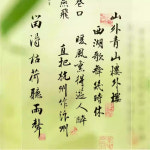 山外青山樓外樓
西湖歌舞幾時休
暖風熏得遊人醉
直把杭州作汴州
巷口
燕飛
留得枯荷聽雨聲